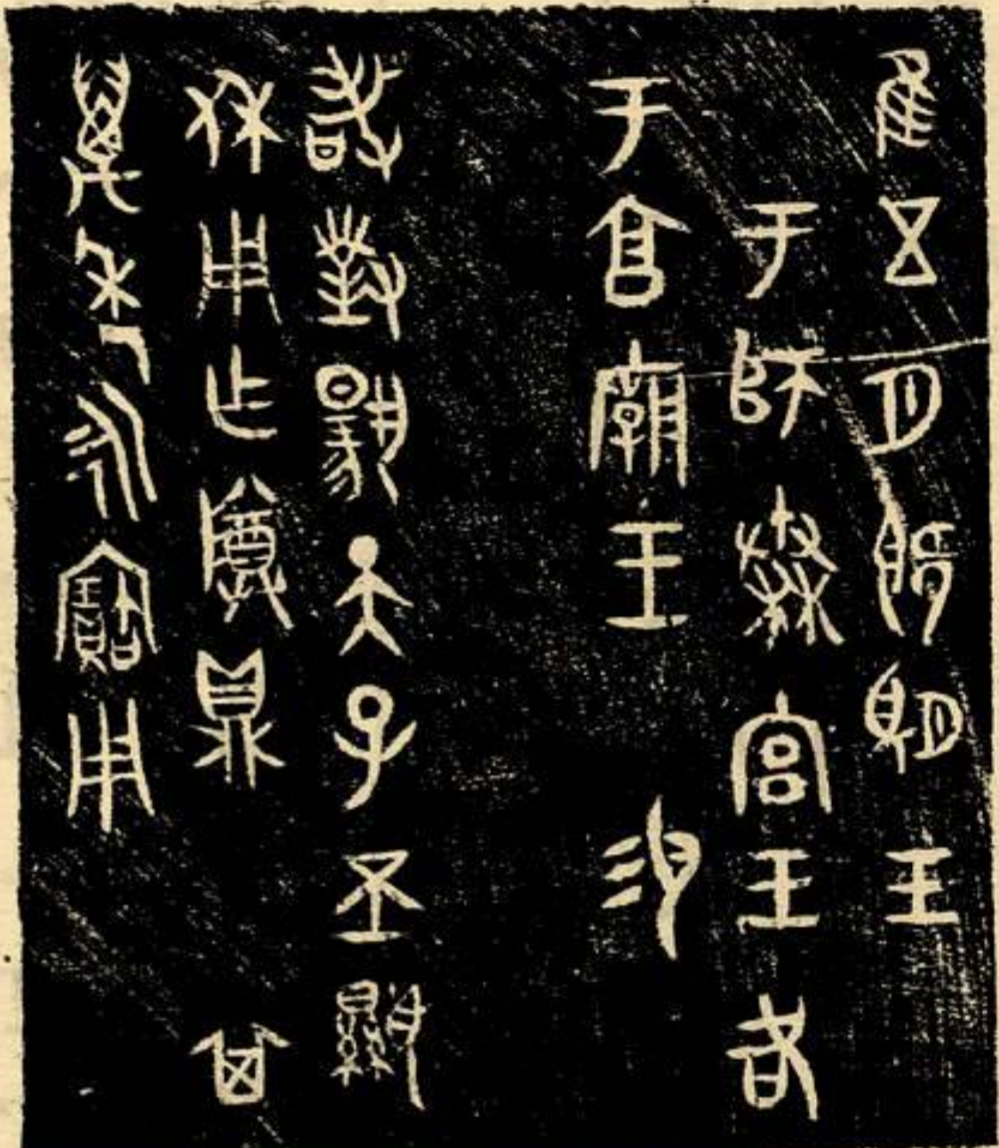 隹五月既望王
于師秦宮王各
于享廟王 易
敢對揚天子不顯
休用乍尊鼎 其
萬年永寶用